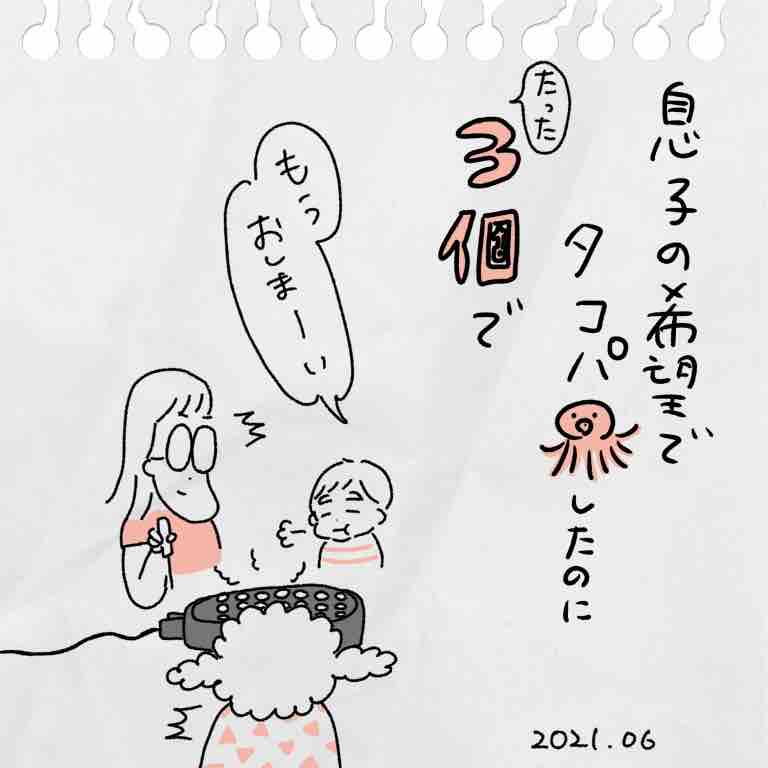 息子の希望で
タコパ
したのに
たった
3個で
もう
おしまーい
2021.06